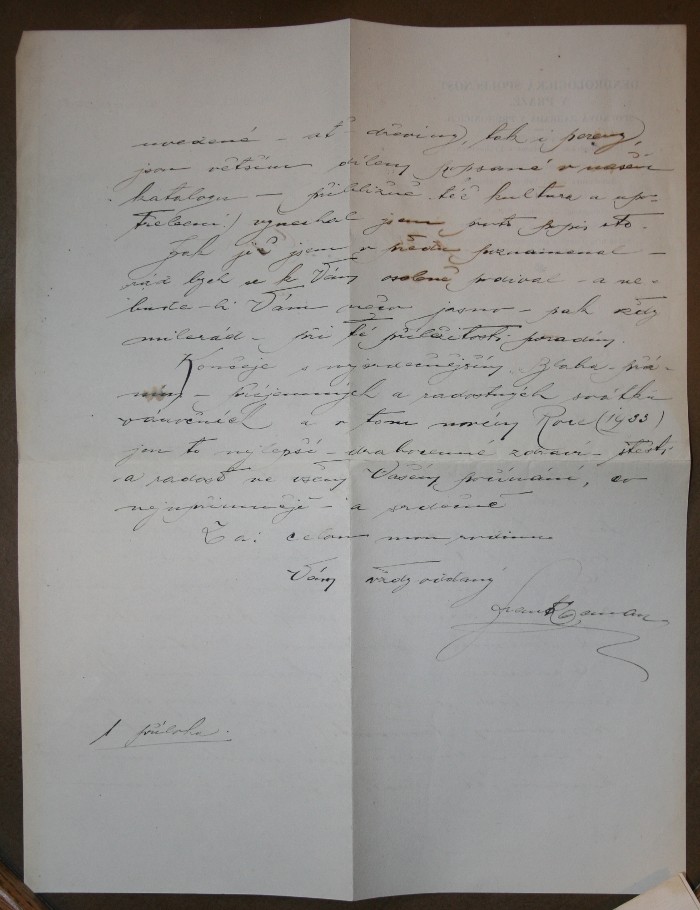 uvedené – ať dřeviny, tak i pereny,
jsou větším dílem popsané v našem
katalogu – přibližně též kultura a up-
třebení) vynechal jsem proto popis toho.
Jak již jsem v předu poznamenal –
rád bych se k Vám osobně podíval – a ne-
bude-li Vám něco jasno – pak vždy
milerád – při té příležitosti poradím.
Končeje s nejsrdečnějším přá-
ním – příjemných a radostných svátků
vánočních a v tom novém Roce (1933)
jen to nejlepší – drahocenné zdraví – štěstí
a radost ve všem Vašem počínání, co
nejupřímněji – a srdečně
Za: celou mou rodinu
Vám vždy oddaný
Frant. Zeman
1 příloha.